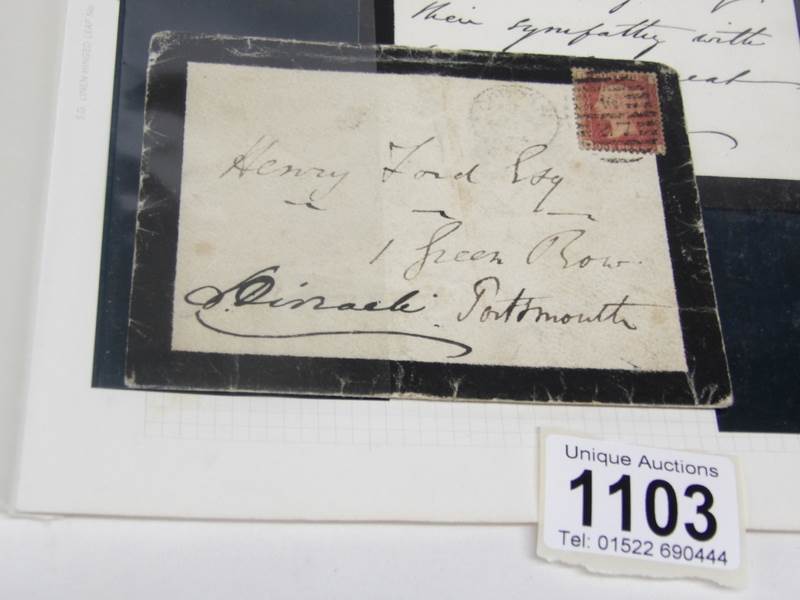 their sympathy with
Henry Ford Esq
1 Green Row
Disraeli Portsmouth
Unique Auctions
1103
Tel: 01522 690444